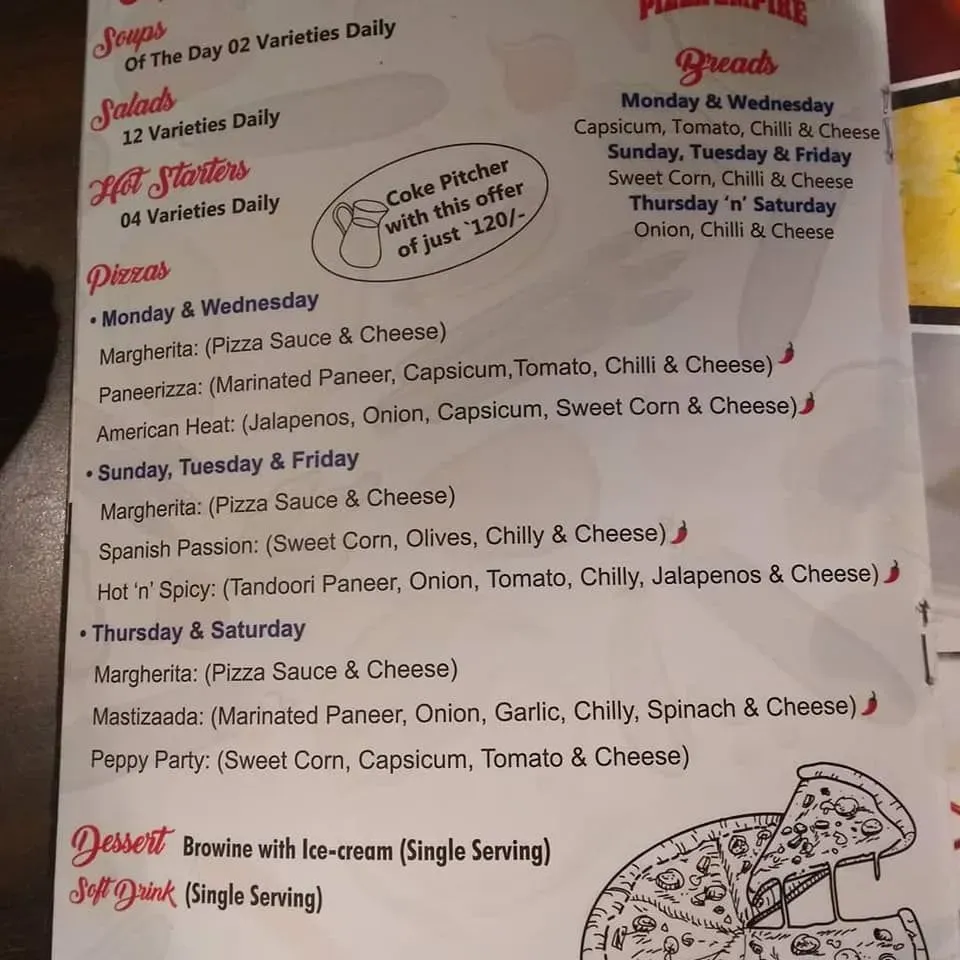 Soups
Of The Day 02 Varieties Daily
Salads
12 Varieties Daily
Hot Starters
04 Varieties Daily
Coke Pitcher
with this offer
of just `120/-
PIZZA EMPIRE
Breads
Monday & Wednesday
Capsicum, Tomato, Chilli & Cheese
Sunday, Tuesday & Friday
Sweet Corn, Chilli & Cheese
Thursday ‘n’ Saturday
Onion, Chilli & Cheese
Pizzas
• Monday & Wednesday
Margherita: (Pizza Sauce & Cheese)
Paneerizza: (Marinated Paneer, Capsicum,Tomato, Chilli & Cheese)
American Heat: (Jalapenos, Onion, Capsicum, Sweet Corn & Cheese)
• Sunday, Tuesday & Friday
Margherita: (Pizza Sauce & Cheese)
Spanish Passion: (Sweet Corn, Olives, Chilly & Cheese)
Hot ‘n’ Spicy: (Tandoori Paneer, Onion, Tomato, Chilly, Jalapenos & Cheese)
• Thursday & Saturday
Margherita: (Pizza Sauce & Cheese)
Mastizaada: (Marinated Paneer, Onion, Garlic, Chilly, Spinach & Cheese)
Peppy Party: (Sweet Corn, Capsicum, Tomato & Cheese)
Dessert Browine with Ice-cream (Single Serving)
Soft Drink (Single Serving)